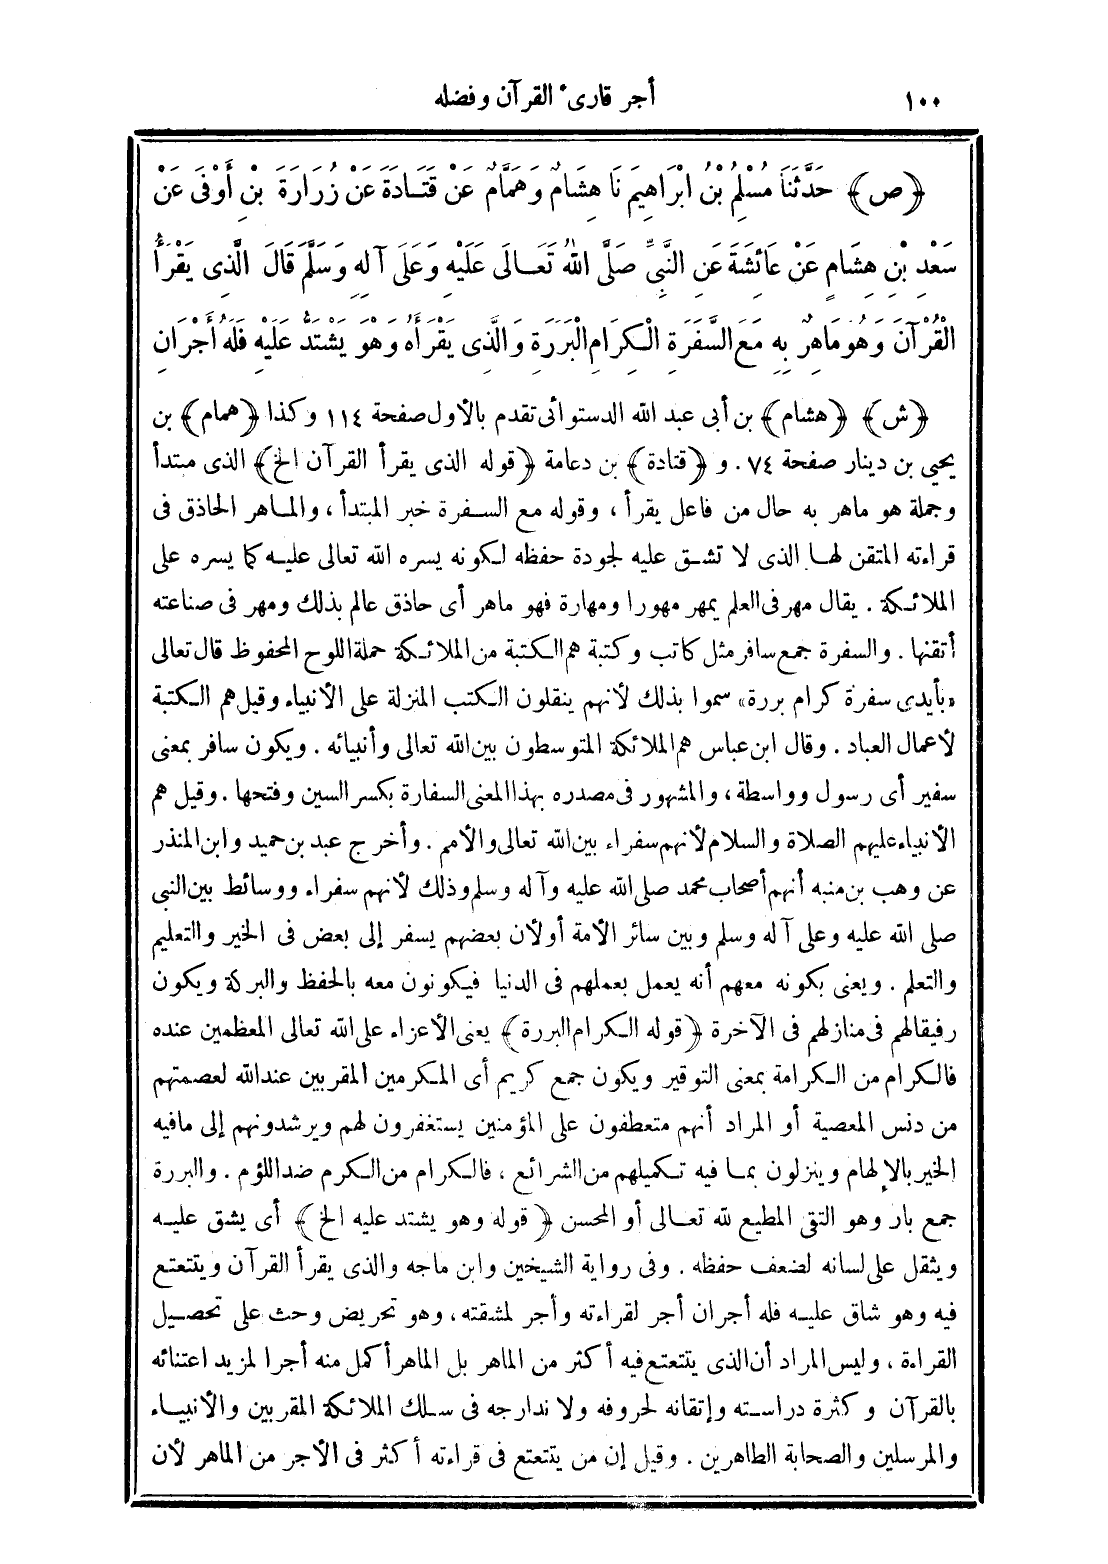 ١٠٠ أجر قارىء القرآن وفضله
﴿ص﴾ حَدَّثَنَا مُسْلِمُ بْنُ ابْرَاهِيمَ نَا هِشَامٌ وَهَمَّامٌ عَنْ قَتَادَةَ عَنْ زُرَارَةَ بْنِ أَوْفَى عَنْ
سَعْدِ بْنِ هِشَامٍ عَنْ عَائِشَةَ عَنِ النَّبِيِّ صَلَّى اللهُ تَعَالَى عَلَيْهِ وَعَلَى آلِهِ وَسَلَّمَ قَالَ الَّذِى يَقْرَأُ
الْقُرْآنَ وَهُوَ مَاهِرٌ بِهِ مَعَ السَّفَرَةِ الْكِرَامِ الْبَرَرَةِ وَالَّذِى يَقْرَأُهُ وَهْوَ يَشْتَدُّ عَلَيْهِ فَلَهُ أَجْرَانِ
﴿ش﴾ ﴿هشام﴾ بن أبى عبد الله الدستوائى تقدم بالأول صفحة ١١٤ وكذا ﴿همام﴾ بن
يحيى بن دينار صفحة ٧٤. و ﴿قتادة﴾ بن دعامة ﴿قوله الذى يقرأ القرآن الخ﴾ الذى مبتدأ
وجملة هو ماهر به حال من فاعل يقرأ ، وقوله مع السفرة خبر المبتدأ ، والماهر الحاذق فى
قراءته المتقن لها الذى لا تشق عليه لجودة حفظه لكونه يسره الله تعالى عليه كما يسره على
الملائكة . يقال مهر فى العلم يمهر مهورا ومهارة فهو ماهر أى حاذق عالم بذلك ومهر فى صناعته
أتقنها . والسفرة جمع سافر مثل كاتب وكتبة هم الكتبة من الملائكة حملة اللوح المحفوظ قال تعالى
«بأيدى سفرة كرام بررة» سموا بذلك لأنهم ينقلون الكتب المنزلة على الأنبياء وقيل هم الكتبة
لأعمال العباد . وقال ابن عباس هم الملائكة المتوسطون بين الله تعالى وأنبيائه . ويكون سافر بمعنى
سفير أى رسول وواسطة ، والمشهور فى مصدره بهذا المعنى السفارة بكسر السين وفتحها . وقيل هم
الأنبياء عليهم الصلاة والسلام لأنهم سفراء بين الله تعالى والأمم . وأخرج عبد بن حميد وابن المنذر
عن وهب بن منبه أنهم أصحاب محمد صلى الله عليه وآله وسلم وذلك لأنهم سفراء ووسائط بين النبى
صلى الله عليه وعلى آله وسلم وبين سائر الأمة أولأن بعضهم يسفر إلى بعض فى الخير والتعليم
والتعلم . ويعنى بكونه معهم أنه يعمل بعملهم فى الدنيا فيكونون معه بالحفظ والبركة ويكون
رفيقا لهم فى منازلهم فى الآخرة ﴿قوله الكرام البررة﴾ يعنى الأعزاء على الله تعالى المعظمين عنده
فالكرام من الكرامة بمعنى التوقير ويكون جمع كريم أى المكرمين المقربين عند الله لعصمتهم
من دنس المعصية أو المراد أنهم متعطفون على المؤمنين يستغفرون لهم ويرشدونهم إلى مافيه
الخير بالإلهام وينزلون بما فيه تكميلهم من الشرائع ، فالكرام من الكرم ضد اللؤم . والبررة
جمع بار وهو التقى المطيع لله تعالى أو المحسن ﴿قوله وهو يشتد عليه الخ﴾ أى يشق عليه
ويثقل على لسانه لضعف حفظه . وفى رواية الشيخين وابن ماجه والذى يقرأ القرآن ويتتعتع
فيه وهو شاق عليه فله أجران أجر لقراءته وأجر لمشقته ، وهو تحريض وحث على تحصيل
القراءة ، وليس المراد أن الذى يتتعتع فيه أكثر من الماهر بل الماهر أكمل منه أجرا لمزيد اعتنائه
بالقرآن وكثرة دراسته وإتقانه لحروفه ولا ندارجه فى سلك الملائكة المقربين والأنبياء
والمرسلين والصحابة الطاهرين . وقيل إن من يتتعتع فى قراءته أكثر فى الأجر من الماهر لأن